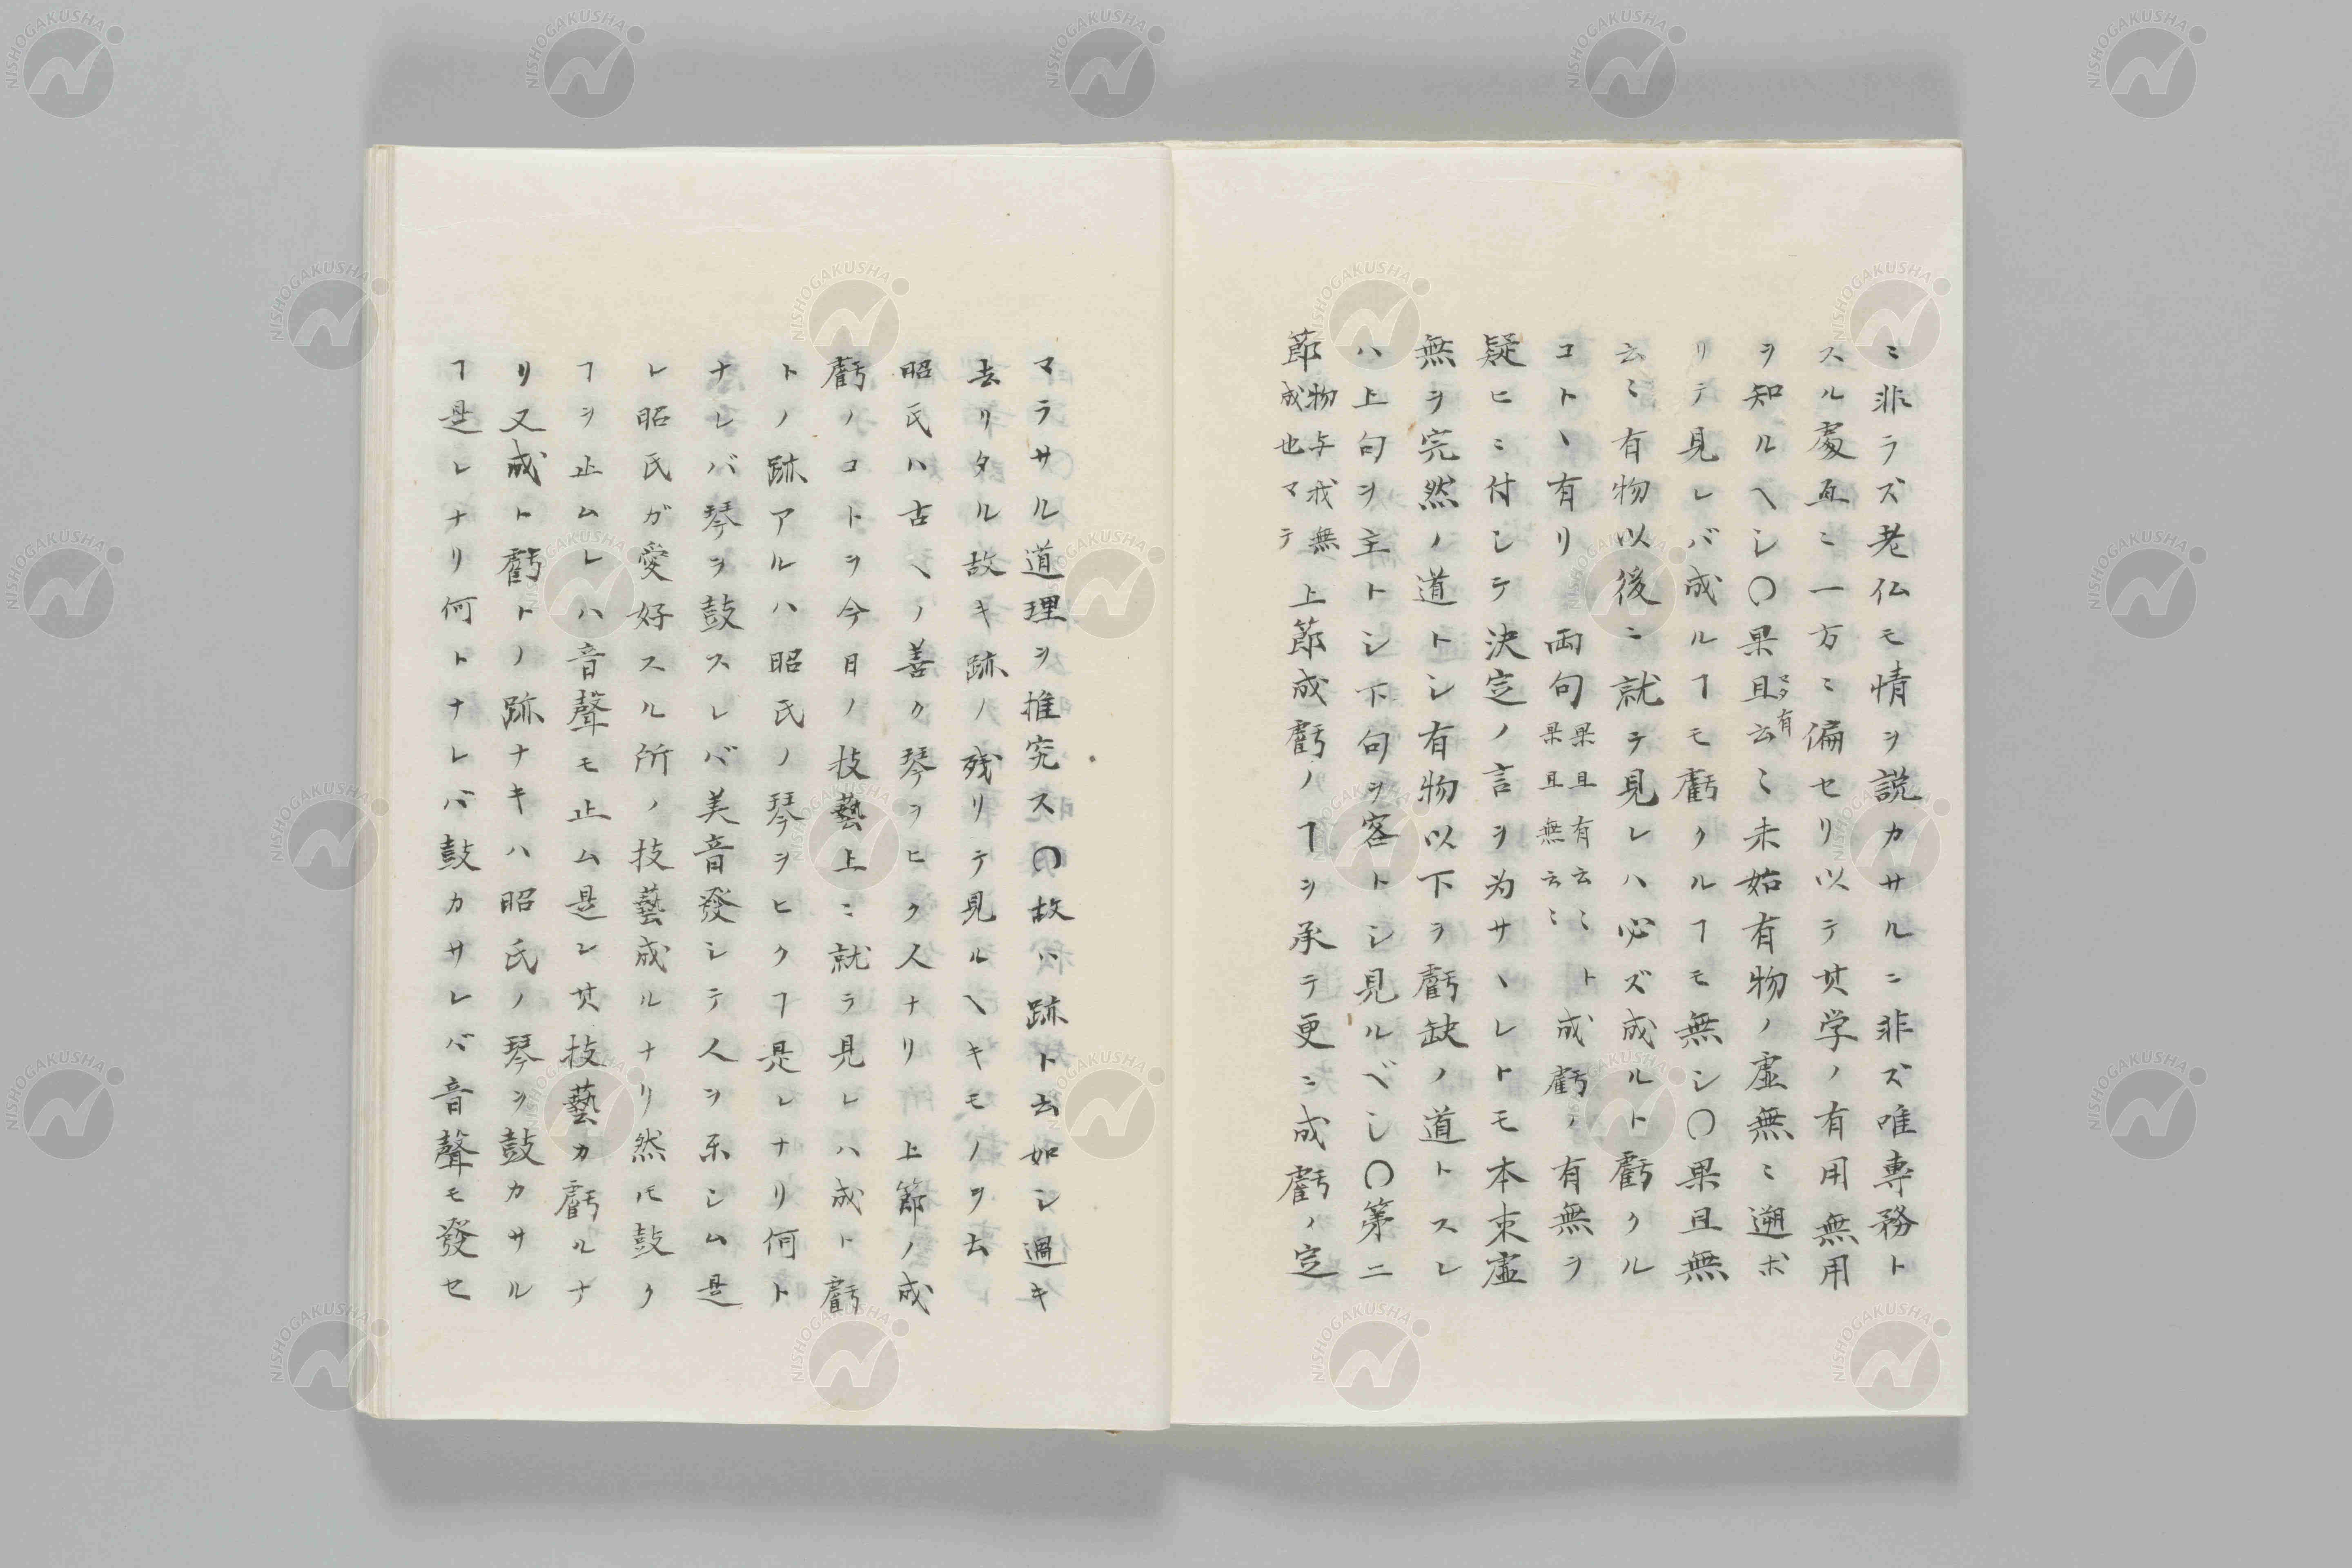 ニ非ラズ老仏モ情ヲ説カサルニ非ズ唯専務ト
スル處互ニ一方ニ偏セリ以テ其学ノ有用無用
ヲ知ルヘシ〇果且有云ミ未始有物ノ虚無ニ遡ボ
リテ見レバ成ルヿモ虧クルヿモ無シ〇果且無
云ミ有物以後ニ就テ見レハ必ズ成ルト虧クル
コトヽ有リ両句果且有云ミト果且無云ミ成虧ノ有無ヲ
疑ヒニ付シテ決定ノ言ヲ为サヽレトモ本来虚
無ヲ完然ノ道トシ有物以下ヲ虧缺ノ道トスレ
ハ上句ヲ主トシ下句ヲ客トシ見ルベシ〇第二
節物与我無成也マテ上節成虧ノヿヲ承テ更ニ成虧ノ定
マラサル道理ヲ推究ス〇故ハ跡ト云如シ過キ
去リタル故キ跡ノ残リテ見ルヘキモノヲ云
昭氏ハ古ヘノ善ク琴ヲヒク人ナリ上節ノ成
虧ノコトヲ今日ノ技藝上ニ就ラ見レハ成ト虧
トノ跡アルハ昭氏ノ琴ヲヒクヿ是レナリ何ト
ナレバ琴ヲ鼓スレバ美音發シテ人ヲ乐シム是
レ昭氏ガ愛好スル所ノ技藝成ルナリ然ルニ鼓ク
ヿヲ止ムレハ音聲モ止ム是レ其技藝カ虧ルナ
リ又成ト虧トノ跡ナキハ昭氏ノ琴ヲ鼓カサル
ヿ是レナリ何トナレバ鼓カサレバ音聲モ發セ
NISHOGAKUSHA